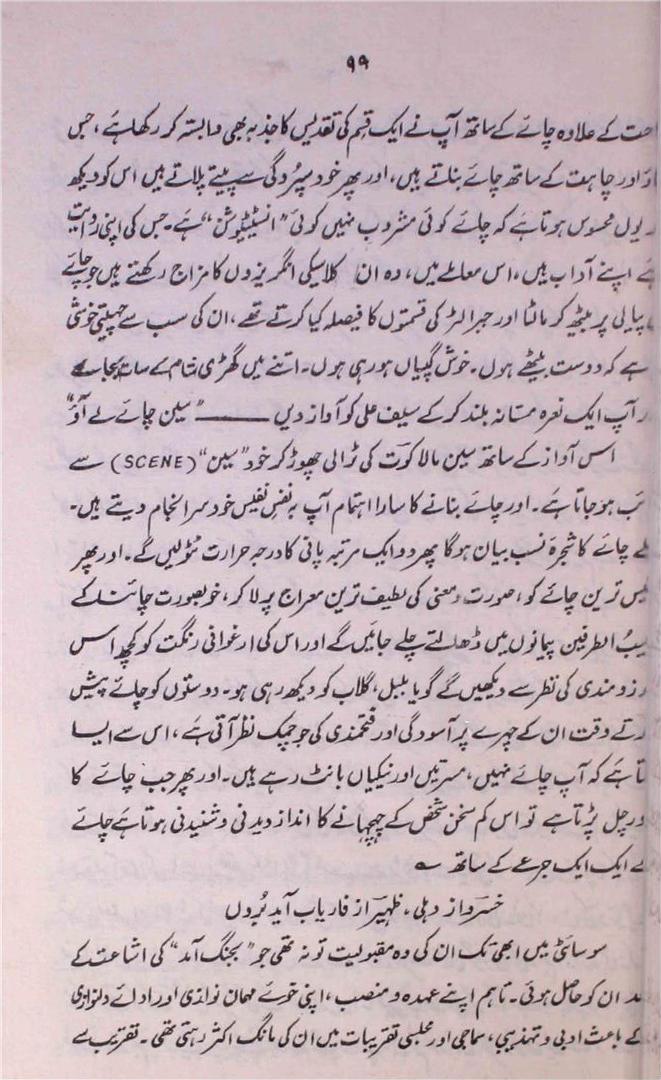 ۹۹
کے علاوہ چائے کے ساتھ آپ نے ایک قسم کی تقدیس کا جذبہ بھی وابستہ کر رکھا ہے، جس
اور چاہت کے ساتھ چائے بناتے ہیں، اور پھر خود سپردگی سے پیتے پلاتے ہیں اس کو دیکھ
یوں محسوس ہوتا ہے کہ چائے کوئی مشروب نہیں کوئی "انسٹیٹیوشن" ہے۔ جس کی اپنی روایت
اپنے آداب ہیں، اس معاملے میں، وہ ان کلاسیکی انگریزوں کا مزاج رکھتے ہیں جو چائے
پیالی پر بیٹھ کر مالٹا اور جبرالٹر کی قسمتوں کا فیصلہ کیا کرتے تھے، ان کی سب سے چہیتی خوشی
ہے کہ دوست بیٹھے ہوں۔ خوش گپیاں ہو رہی ہوں۔ اتنے میں گھڑی شام کے سات بجا دے
آپ ایک نعرہ مستانہ بلند کر کے سیف علی کو آواز دیں ——— "سین چائے لے آؤ"
اس آواز کے ساتھ سین مالاکوت کی ٹرالی چھوڑ کر خود "سین" (SCENE) سے
ہو جاتا ہے۔ اور چائے بنانے کا سارا اہتمام آپ بہ نفسِ نفیس خود سرانجام دیتے ہیں۔
چائے کا شجرۂ نسب بیان ہوگا پھر دو ایک مرتبہ پانی کا درجہ حرارت ٹٹولیں گے۔ اور پھر
ترین چائے کو، صورت و معنی کی لطیف ترین معراج پر لا کر، خوبصورت چائنا کے
الطرفین پیمانوں میں ڈھالتے چلے جائیں گے اور اس کی ارغوانی رنگت کو کچھ اس
مندی کی نظر سے دیکھیں گے گویا بلبل، گلاب کو دیکھ رہی ہو۔ دوستوں کو چائے پیش
وقت ان کے چہرے پر آسودگی اور فتحمندی کی جو چمک نظر آتی ہے، اس سے ایسا
ہے کہ آپ چائے نہیں، مسرتیں اور نیکیاں بانٹ رہے ہیں۔ اور پھر جب چائے کا
چل پڑتا ہے تو اس کم سخن شخص کے چہچہانے کا انداز دیدنی و شنیدنی ہوتا ہے چائے
ایک ایک جرعے کے ساتھ ؎
خسرو از دہلی، ظہیر از فاریاب آید بُروں
سوسائٹی میں ابھی تک ان کی وہ مقبولیت تو نہ تھی جو "بجنگ آمد" کی اشاعت کے
ان کو حاصل ہوئی۔ تاہم اپنے عہدہ و منصب، اپنی خوئے مہمان نوازی اور ادائے دلنوازی
کے باعث ادبی و تہذیبی، سماجی اور مجلسی تقریبات میں ان کی مانگ اکثر رہتی تھی۔ تقریب سے